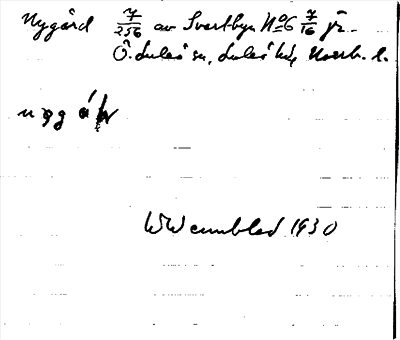 Nygård 7/256 av Svartbyn No 6 7/16 fr.
Ö. Luleå sn, Luleå hd, Norrb. l.
W Wennblad 1930